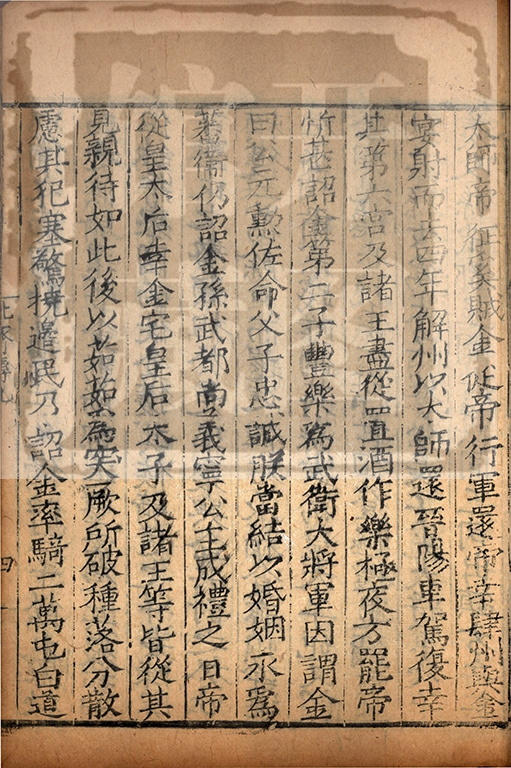 太師帝征奚賊金從帝行軍還帝幸肆州與金
宴射而去四年解州以太師還晉陽車駕復幸
其第六宮及諸王盡從置酒作樂極夜方罷帝
忻甚詔金第二子豐樂為武衛大將軍因謂金
曰公元勳佐命父子忠誠朕當結以婚姻永為
蕃衞仍詔金孫武都尚義寧公主成禮之日帝
從皇太后幸金宅皇后太子及諸王等皆從其
見親待如此後以茹茹為突厥所破種落分散
慮其犯塞驚撓邊民乃詔金率騎二萬屯白道
四